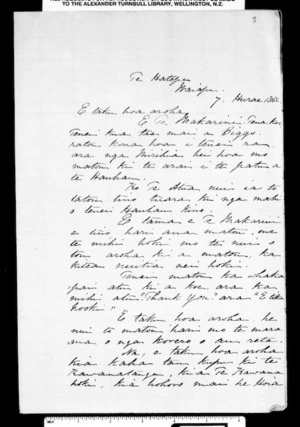 TO THE ALEXANDER TURNBULL LIBRARY, WELLINGTON, N.Z.
Te Hatepe
Waiapu
7. Hurae. 1865.
E taku hoa aroha
E Te Makarini. Tena koe
Tenei kua tae mai a Biggs
ratou ko ona hoa i tenei ra
ara nga Miihia hei hoa mo
matou ki te arai i te patu a
te Hauhau.
Ko Te Atua nui ia to
tatou tino tuara ki nga mahi
o tenei Hauhau kino.
E tama e Te Makarini
e tino hari ana matou, me
te mihi hoki mo tei nui o
tou aroha ki a matou, ka
kitea neutia nei hoki.
Inaia matou ka whaka
pai atu ki a koe, ara ka
mihi atu "Thank you" ara "E taku
hoa"
E taku hoa aroha, he
nui to matou hari mo te mara
ma o nga korero o au reta.
Na, e taku hoa aroha
kia kaha tau kupu ki te
Kawanatanga, ki a Te Kawana
hoki, kia hohoro mai he Hoia